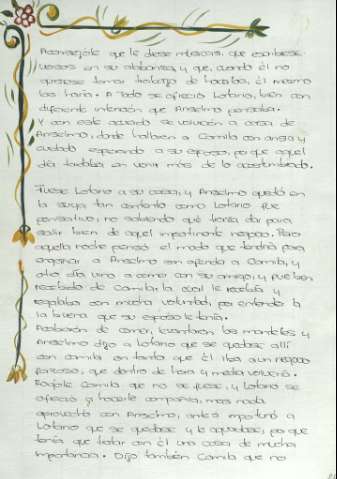 Aconsejóle que le diese músicas, que escribiese
versos en su alabanza, y que, cuando él no
quisiese tomar trabajo de hacerlos, él mismo
los haría. A todo se ofreció Lotario, bien con
diferente intención que Anselmo pensaba.
Y con este acuerdo se volvieron a casa de
Anselmo, donde hallaron a Camila con ansia y
cuidado esperando a su esposo, porque aquel
día tardaba en venir más de lo acostumbrado.
Fuese Lotario a su casa, y Anselmo quedó en
la suya tan contento como Lotario fue
pensativo, no sabiendo qué traza dar para
salir bien de aquel impertinente negocio. Pero
aquella noche pensó el modo que tendría para
engañar a Anselmo sin ofender a Camila, y
otro día vino a comer con su amigo, y fue bien
recibido de Camila, la cual le recibía y
regalaba con mucha voluntad, por entender la
la buena que su esposo le tenía.
Acabaron de comer, levantaron los manteles, y
Anselmo dijo a Lotario que se quedase allí
con Camila en tanto que él iba a un negocio
forzoso, que dentro de hora y media volvería.
Rogóle Camila que no se fuese, y Lotario se
ofreció a hacerle compañía, mas nada
aprovechó con Anselmo, antes importunó a
Lotario que se quedase y le aguardase, porque
tenía que tratar con él una cosa de mucha
importancia. Dijo también Camila que no